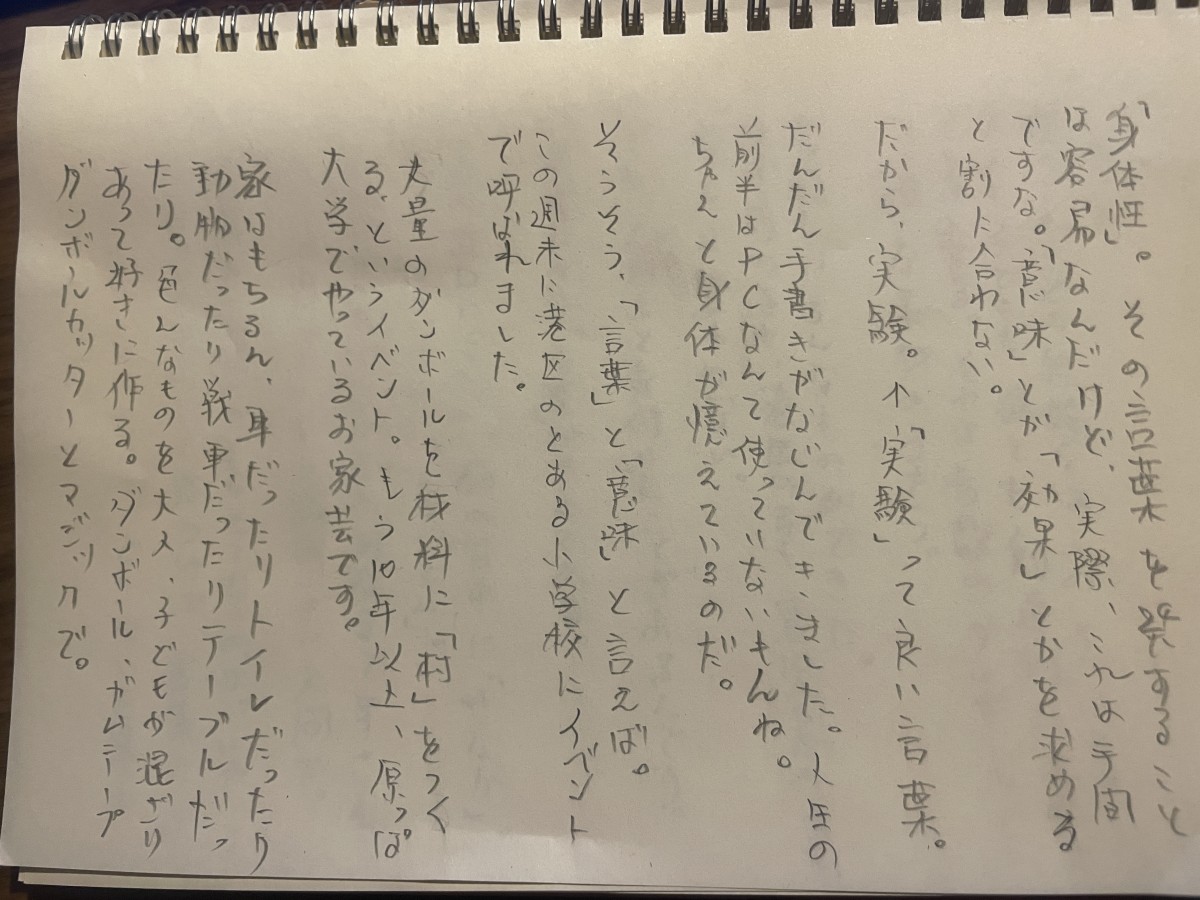 「身体性」。その言葉を発すること
は容易なんだけど、実際、これは手間
ですな。「意味」とか「効果」とかを求める
と割に合わない。
だから、実験。↑「実験」って良い言葉。
だんだん手書きがなじんできました。人生の
前半はPCなんて使っていないもんね。
ちゃんと身体が憶えているのだ。
そうそう、「言葉」と「意味」と言えば。
この週末に港区のとある小学校にイベント
で呼ばれました。
大量のダンボールを材料に「村」をつく
る、というイベント。もう10年以上、原っぱ
大学でやっているお家芸です。
家はもちろん、車だったりトイレだったり
動物だったり戦車だったりテーブルだっ
たり。色んなものを大人、子どもが混ざり
あって好きに作る。ダンボール、ガムテープ
ダンボールカッターとマジックで。